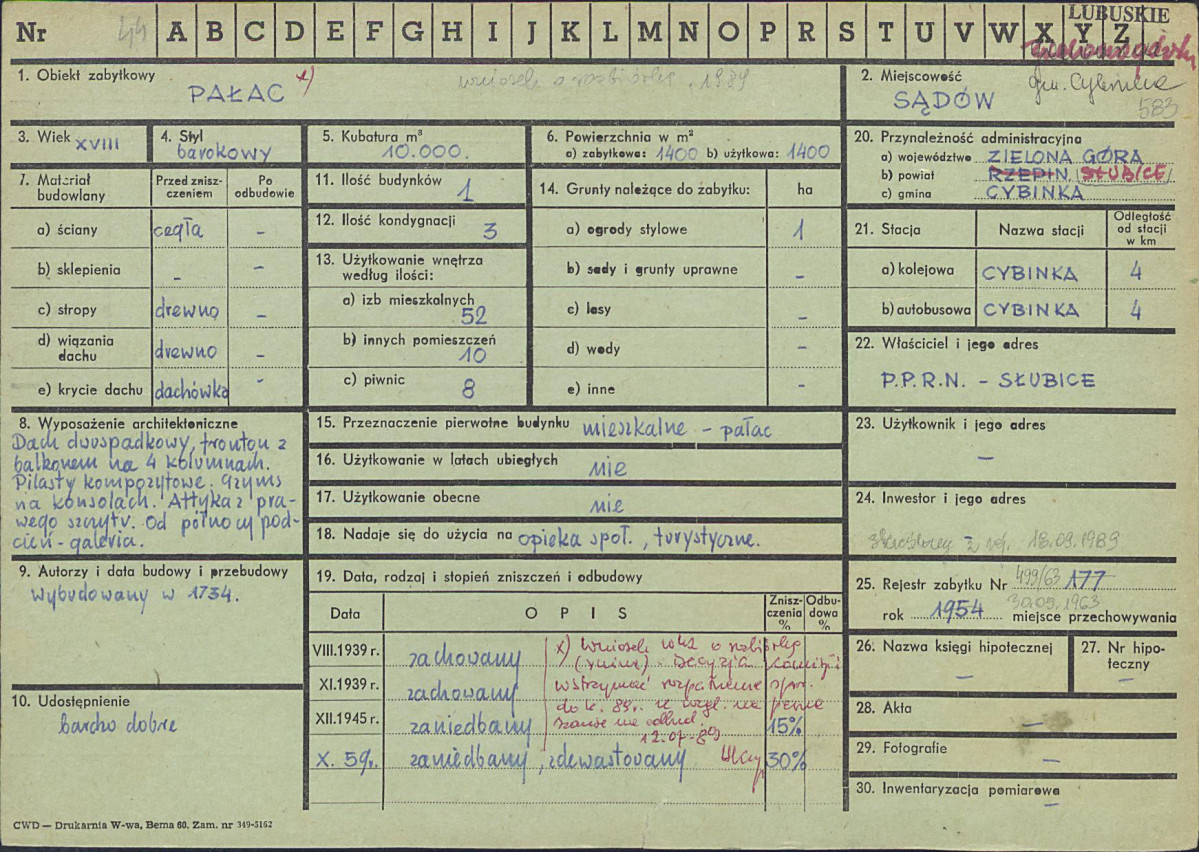 LUBUSKIE
Nr 44 A B C D E F G H I J K L M N O P R S T U V W X Y Z
gm. Cybinka
583
1. Obiekt zabytkowy
PAŁAC x)
wniosek o rozbiórkę . 1989
2. Miejscowość
SĄDÓW
3. Wiek XVIII
4. Styl
barokowy
5. Kubatura m³
10.000.
6. Powierzchnia w m²
a) zabytkowa: 1400 b) użytkowa: 1400
20. Przynależność administracyjna
a) województwo ZIELONA GÓRA
b) powiat RZEPIN (SŁUBICE)
c) gmina CYBINKA
7. Materiał budowlany
Przed znisz-
czeniem
Po
odbudowie
a) ściany cegła –
b) sklepienia – –
c) stropy drewno –
d) wiązania dachu drewno –
e) krycie dachu dachówka –
11. Ilość budynków
1
12. Ilość kondygnacji
3
13. Użytkowanie wnętrza
według ilości:
a) izb mieszkalnych
52
b) innych pomieszczeń
10
c) piwnic
8
14. Grunty należące do zabytku: ha
a) ogrody stylowe 1
b) sady i grunty uprawne –
c) lasy –
d) wody –
e) inne –
21. Stacja
Nazwa stacji
Odległość
od stacji
w km
a) kolejowa CYBINKA 4
b) autobusowa CYBINKA 4
22. Właściciel i jego adres
P.P.R.N. – SŁUBICE
8. Wyposażenie architektoniczne
Dach dwuspadkowy, fronton z
balkonem na 4 kolumnach.
Pilastry kompozytowe. Gzyms
na konsolach. Attyka z pra-
wego szczytu. Od północy pod-
cień-galeria.
15. Przeznaczenie pierwotne budynku mieszkalne – pałac
16. Użytkowanie w latach ubiegłych
nie
17. Użytkowanie obecne
nie
18. Nadaje się do użycia na opieka społ., turystyczne.
23. Użytkownik i jego adres
–
24. Inwestor i jego adres
skreślony z rej. 18.09.1989
9. Autorzy i data budowy i przebudowy
Wybudowany w 1734.
19. Data, rodzaj i stopień zniszczeń i odbudowy
Data
O P I S
Znisz-
czenia
%
Odbu-
dowa
%
VIII.1939 r. zachowany
XI.1939 r. zachowany
XII.1945 r. zaniedbany 15%
X. 59r. zaniedbany, zdewastowany 30%
x) Wniosek o rozbiórkę
Decyzja komisji
wstrzymać rozpatrzenie spr.
do k. 89r. 
12.07.89
25. Rejestr zabytku Nr 499/63 177
30.09.1963
rok 1954 miejsce przechowywania
26. Nazwa księgi hipotecznej
–
27. Nr hipo-
teczny
–
10. Udostępnienie
bardzo dobre
28. Akta
–
29. Fotografie
–
30. Inwentaryzacja pomiarowa
–
CWD — Drukarnia W-wa, Bema 60, Zam. nr 349-5162